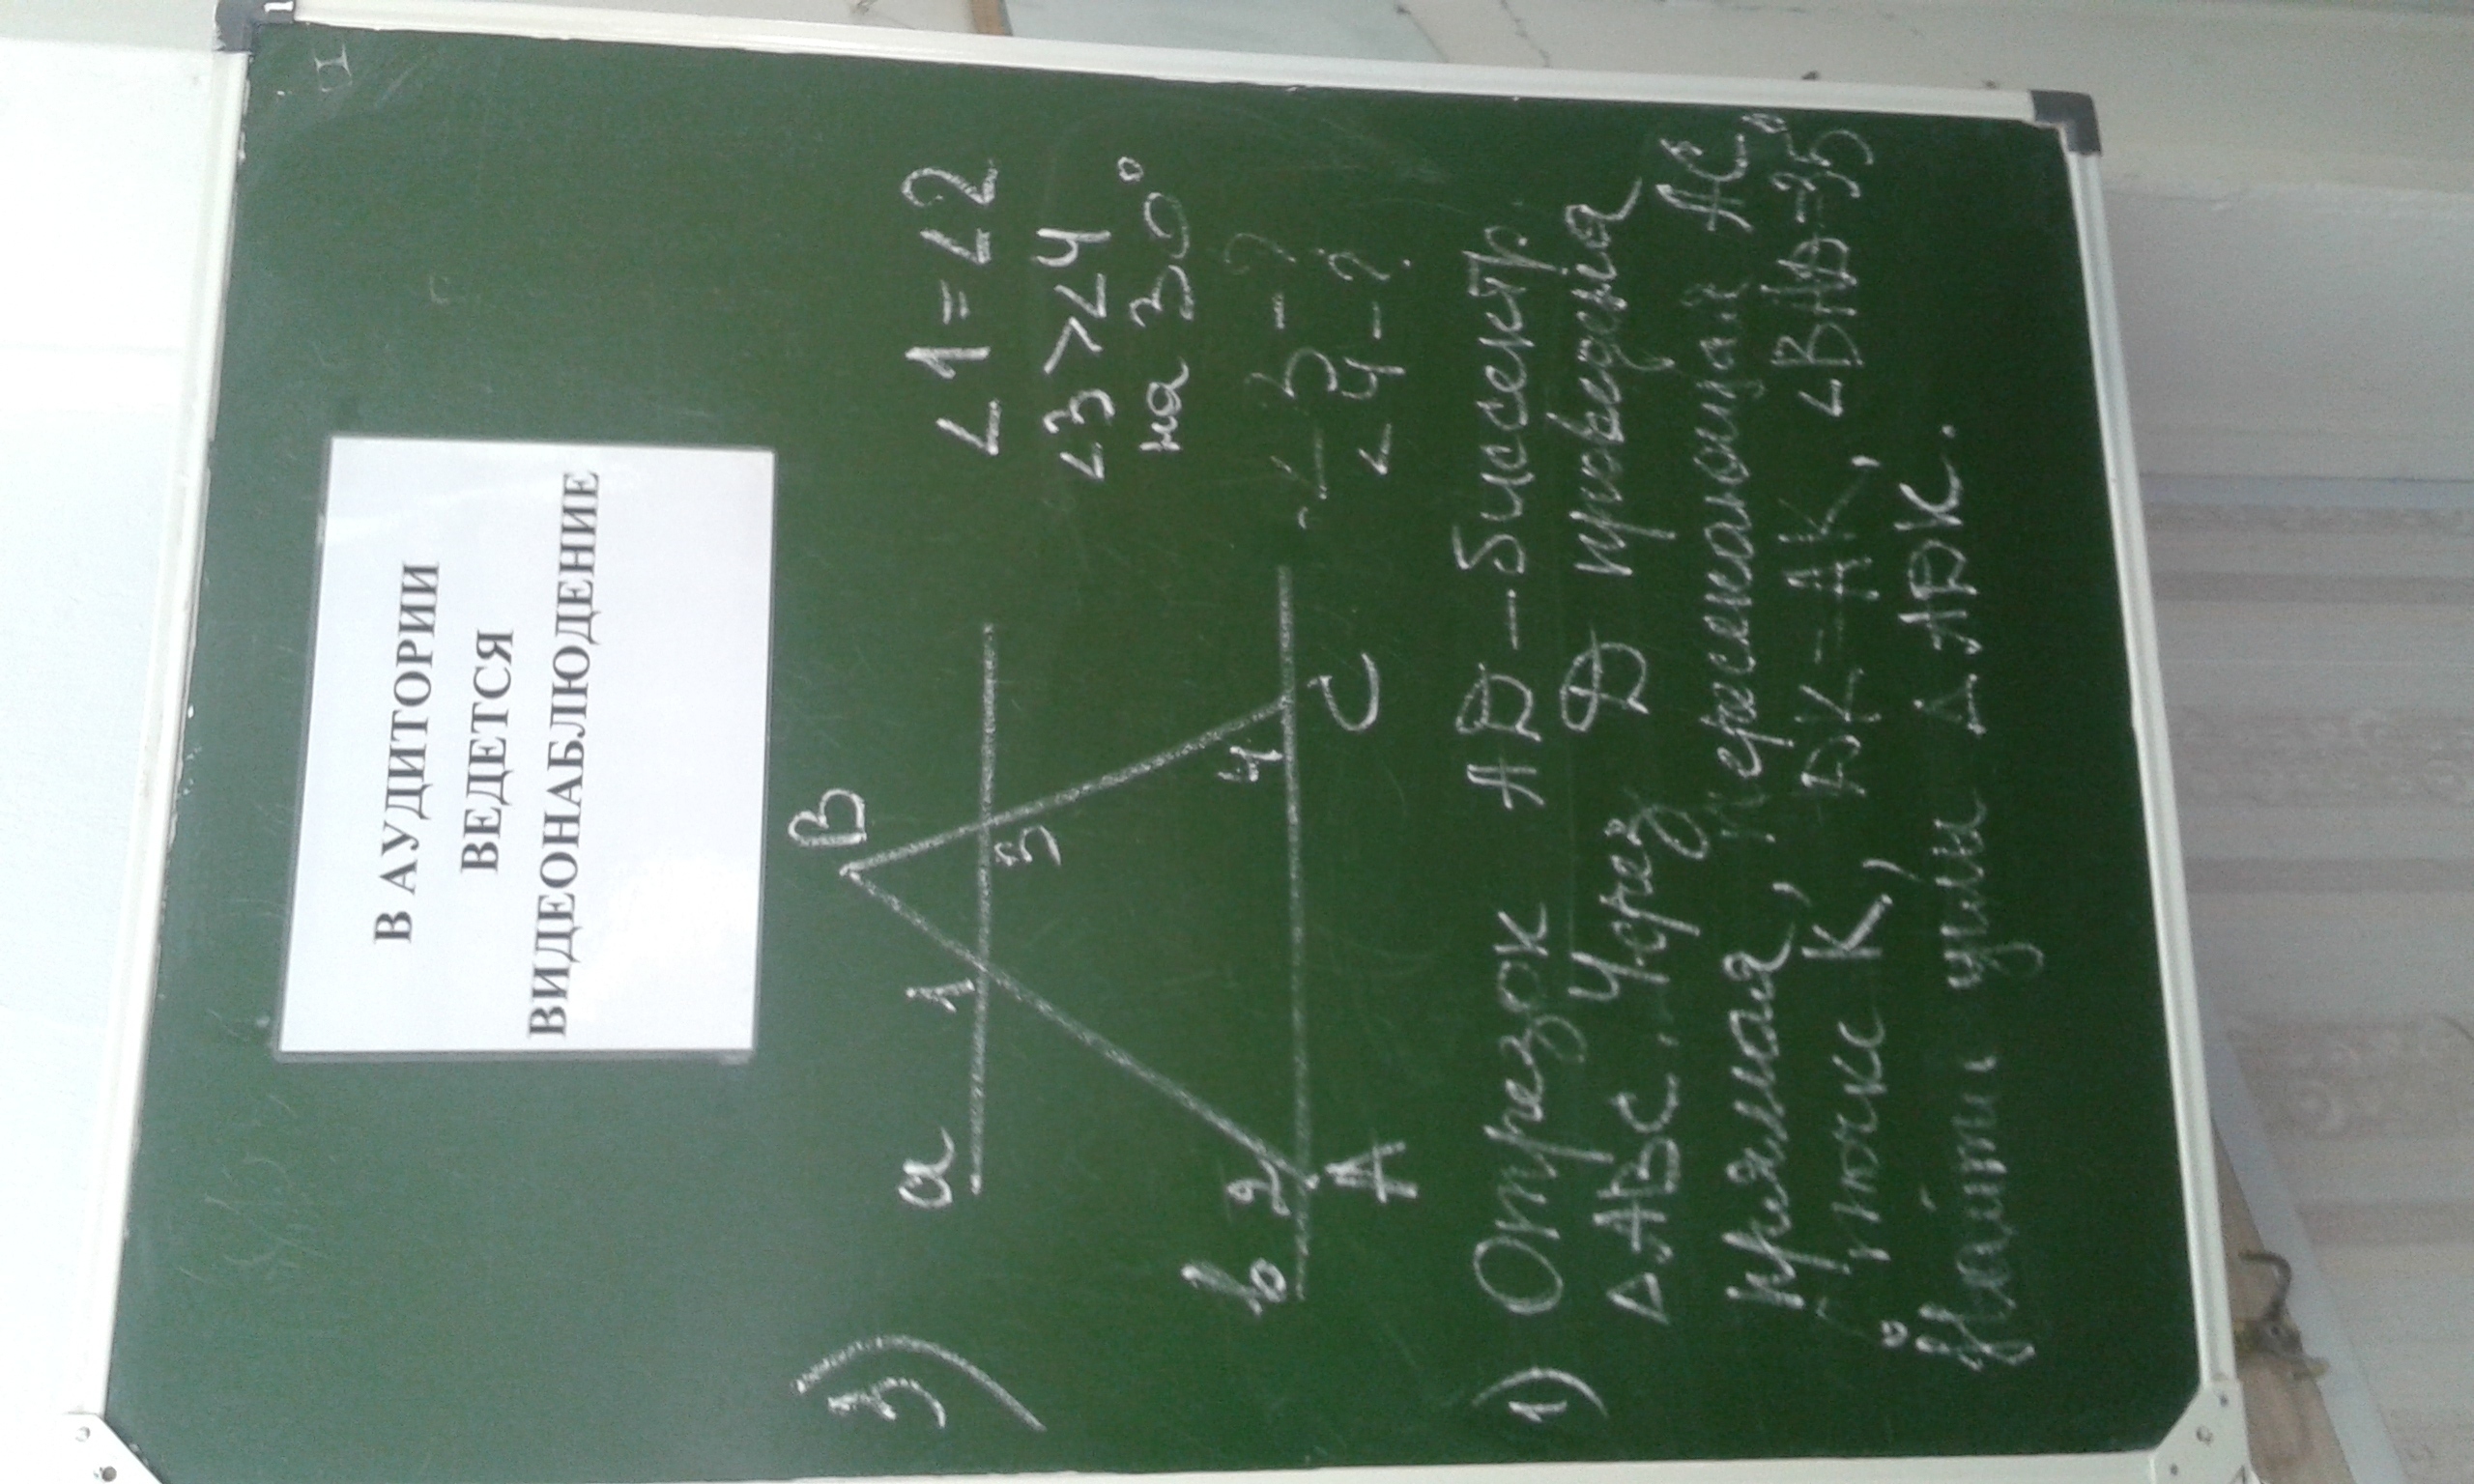 В АУДИТОРИИ
ВЕДЕТСЯ
ВИДЕОНАБЛЮДЕНИЕ
3)
B
a 1
3
b 2 4
A C
∠1=∠2
∠3>∠4
на 30°
∠3-?
∠4-?
1) Отрезок AD - биссектр.
△ABC. Через D проведена
прямая, пересекающая AC
в точке K, DK=AK, ∠BAD=35°
Найти углы △ADK.